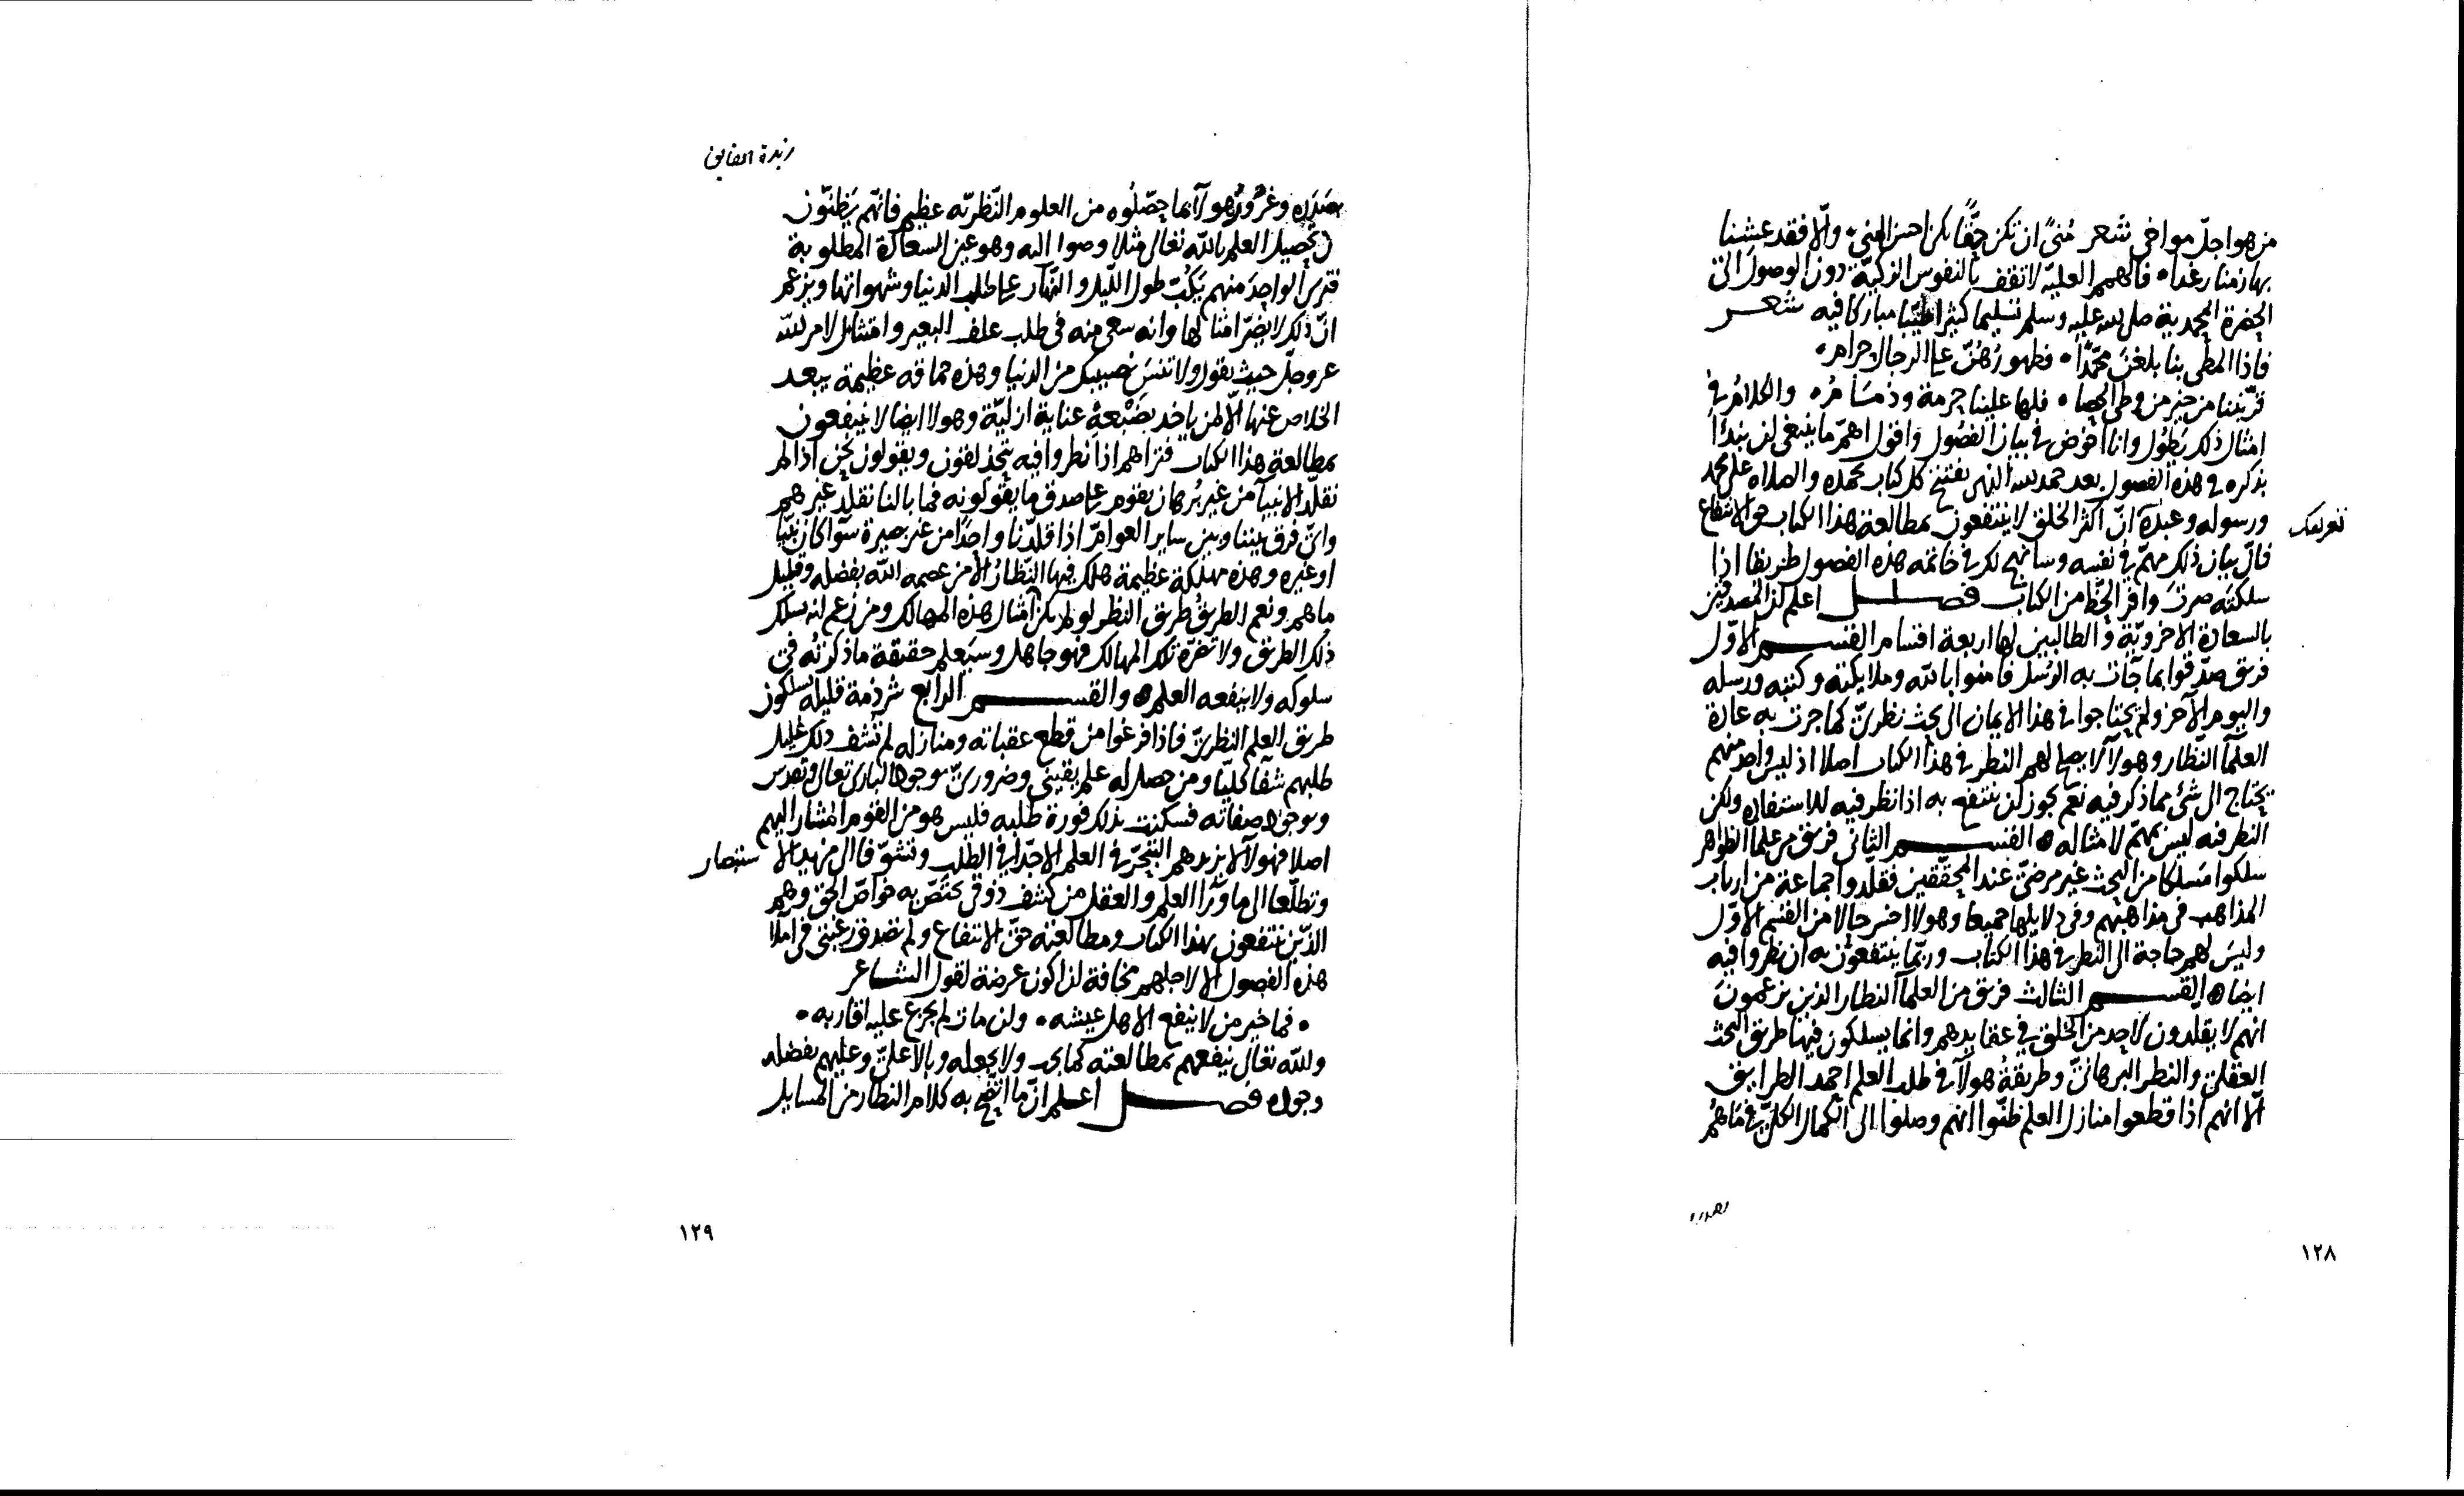 من هو اجلّ مواخى شعر مُنىً ان تكن حقًّا يكن احسن المنى والّا فقد عشنا
بها زمنا رغدا فالهمم العليّة لا تقف بالنفوس الزكيّة دون الوصول الى
الحضرة المحمدية صلى الله عليه وسلم تسليما كثيرا طيّبا مباركا فيه شعر
فاذا المطى بنا بلغن محمّدًا فظهورُهُنّ على الرجال حرام
قرّبننا من خير من وطى الحصا فلها علينا حرمة وذمَامُ والكلامُ فى
امثال ذلك يطُول وانا اخوض فى بيان الفصُول واقول اهمّ ما ينبغى ان يبدأ
بذكره فى هذه الفصول بعد حمد الله الذى يفتتح كل كتاب بحمده والصلاه على محمد
ورسوله وعبده انّ اكثر الخلق لا ينتفعون بمطالعة هذا الكتاب حق الانتفاع
فانّ بيان ذلك مهمّ فى نفسه وسانهج لك فى خاتمه هذه الفصول طريقا اذا
سلكته صرتَ وافر الحظ من الكتاب فصل اعلم ان المصدقين
بالسعادة الاخرويّة والطالبين لها اربعة اقسام القسم الاوّل
فريق صدّقوا بما جآت به الرُسل فآمنوا بالله وملايكته وكتبه ورسله
واليوم الآخر ولم يحتاجوا فى هذا الايمان الى بحث نظرىّ كما جرت به عادة
العلمآ النظار وهولآ لا يصلح لهم النظر فى هذا الكتاب اصلا اذ ليس واحد منهم
يحتاج الى شئ مما ذكر فيه نعم يجوز ان ينتفع به اذا نظر فيه للاستفاده ولكن
النظر فيه ليس بمهمّ لامثاله القسم الثانى فريق من علمآ الظواهر
سلكوا مسلكا من البحث غير مرضىّ عند المحققين فقلّدوا جماعة من ارباب
المذاهب فى مذاهبهم وفى دلايلها جميعا وهولا اخس حالا من القسم الاوّل
وليس لهم حاجة الى النظر فى هذا الكتاب وربّما ينتفعون به ان نظروا فيه
ايضا القسم الثالث فريق من العلمآ النظار الذين يزعمون
انهم لا يقلدون لاحد من الخلق فى عقايدهم وانما يسلكون فيها طريق البحث
العقلىّ والنظر البرهانىّ وطريقةُ هولآ فى طلب العلم احمد الطرايق
الّا انهم اذا قطعوا منازل العلم ظنّوا انهم وصلوا الى الكمال الكلىّ فما هُم
١٢٨
زبدة الحقايق
بصدَده وغُرُورُ هولآ بما حصّلوه من العلوم النّظريّه عظيم فانهم يظنّون
ان تحصيل العلم بالله تعالى مثلا وصول اليه وهو عين السعادة المطلوبة
فترى الواحدَ منهم يَكُبّ طول الليل والنّهار على طلب الدنيا وشهواتها ويزعم
انّ ذلك لا يضرّ امثالها وانه سعى منه فى طلب علف البعير وامتثال لامر الله
عز وجلّ حيث يقول ولا تنسَ نصيبك من الدنيا وهذه حماقه عظيمة يبعد
الخلاص عنها الّا لمن ياخد بضَبْعِه عناية ازليّة وهولا ايضا لا ينتفعون
بمطالعة هذا الكتاب فتراهم اذا نظروا فيه يتحذلقون ويقولون نحن اذا لم
نقلّد الانبيآ من غير بُرهان يقوم على صدق ما يقولونه فما بالنا نقلّد غيرهم
واىّ فرق بيننا وبين ساير العوامّ اذا قلّدنا واحدًا من غير بصيرة سوآ كان نبيّا
او غيره وهذه مهلكة عظيمة هلك فيها النّظارُ الا من عصمه الله بفضله وقليل
ما هم ونعم الطريقُ طريق النظر لو لم يكن امثال هذه المهالك ومن زعم انه يسلك
ذلك الطريق ولا تغرّه تلك المهالك فهو جاهل وسيعلم حقيقة ما ذكرتُه فى
سلوكه ولا ينفعه العلم والقسم الرابع شرذمة قليله يسلكون
طريق العلم النظرىّ فاذا فرغوا من قطع عقباته ومنازله لم تُشف ذلك غليل
طلبهم شفآ كليّا ومن حصل له علم يقينى وضرورىّ بوجود البارى تعالى وتقدس
وبوجود صفاته فسكنت بذلك فورة طلبه فليس هو من القوم المشار اليهم
اصلا فهولآ لا يزيدهم التبحّر فى العلم الا جدّا فى الطلب وتشوّفا الى مزيد الاستبصار
وتطلّعا الى ما ورآ العلم والعقل من كشف ذوقى يختصّ به خواصّ الحق وهم
الذين ينتفعون بهذا الكتاب ومطالعته حقّ الانتفاع ولم تصدق رغبتى فى املآ
هذه الفصول الا لاجلهم مخافة ان اكون عرضة لقول الشاعر
فما خير من لا ينفع الاهل عيشه وان مات لم يجزع عليه اقاربه
والله تعالى ينفعهم بمطالعته كما يجب ولا يجعله وبالا علىّ وعليهم بفضله
وجوده فصل اعلم انّ ما اتّضح به كلام النظار من المسايل
١٢٩